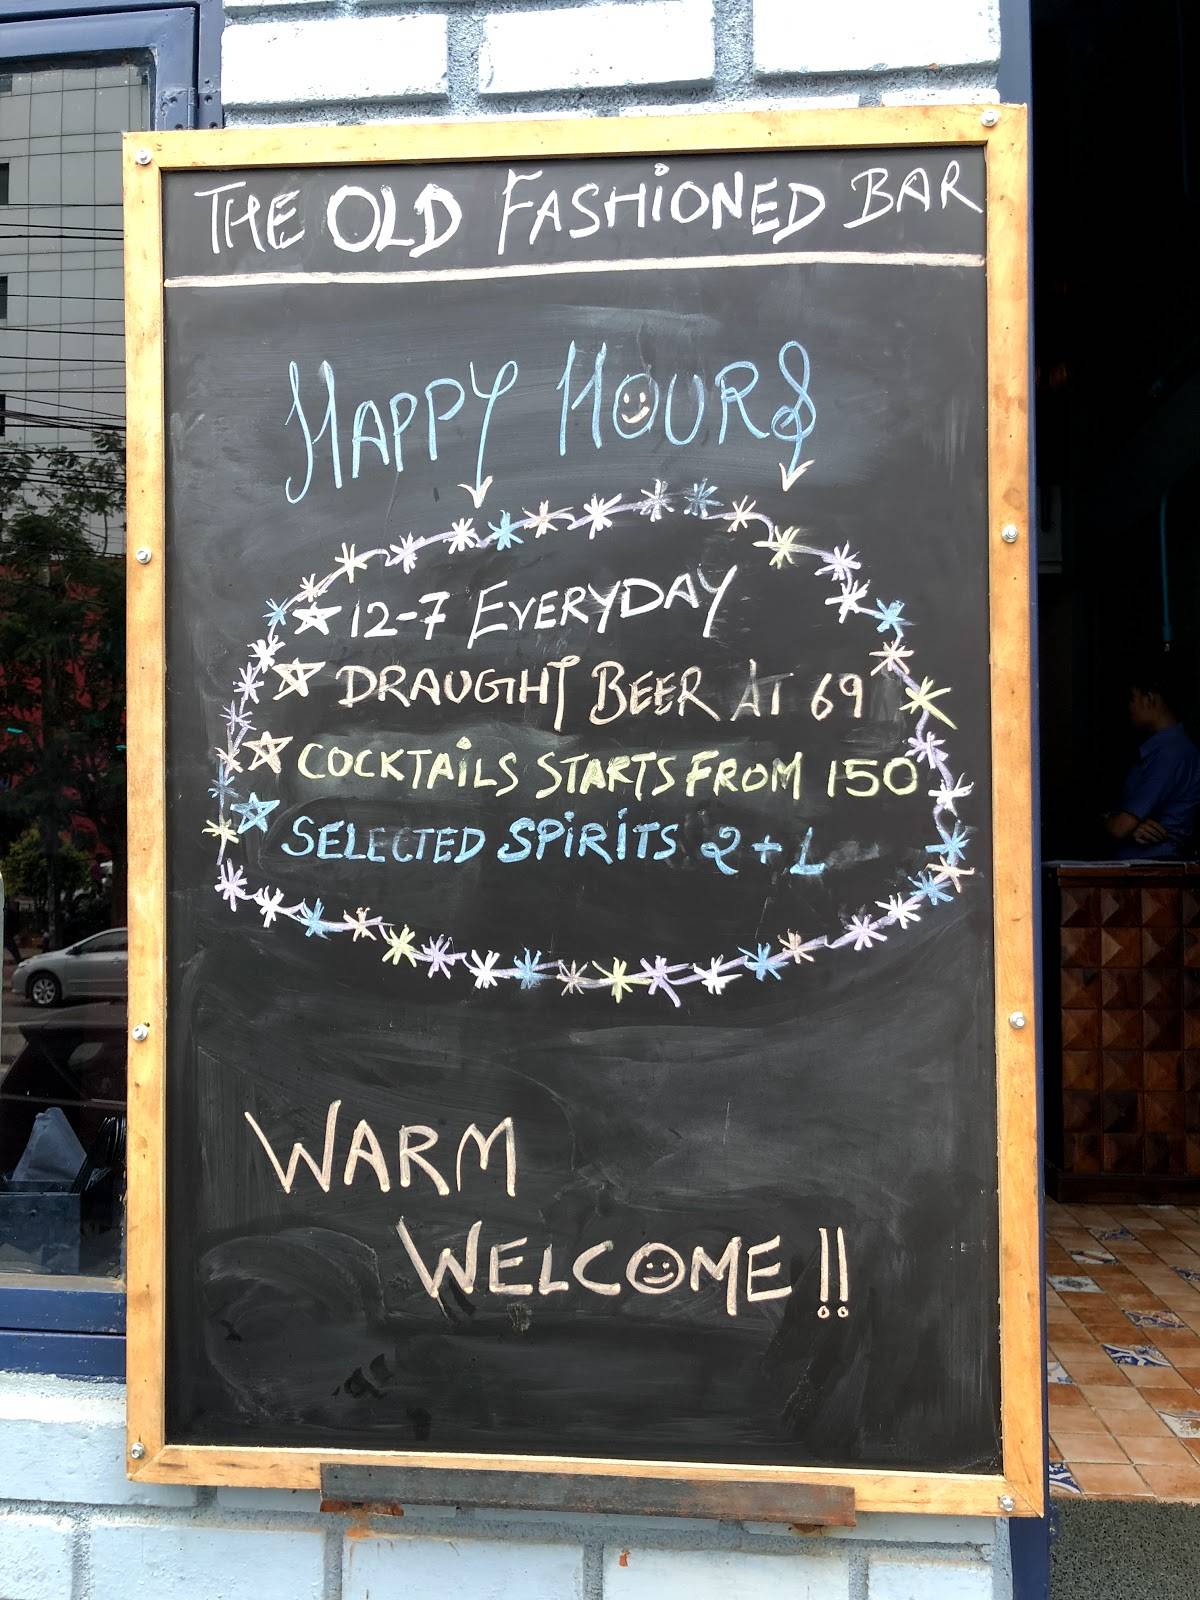 THE OLD FASHIONED BAR
HAPPY HOURS
12-7 EVERYDAY
DRAUGHT BEER AT 69
COCKTAILS STARTS FROM 150
SELECTED SPIRITS 2+1
WARM
WELCOME!!